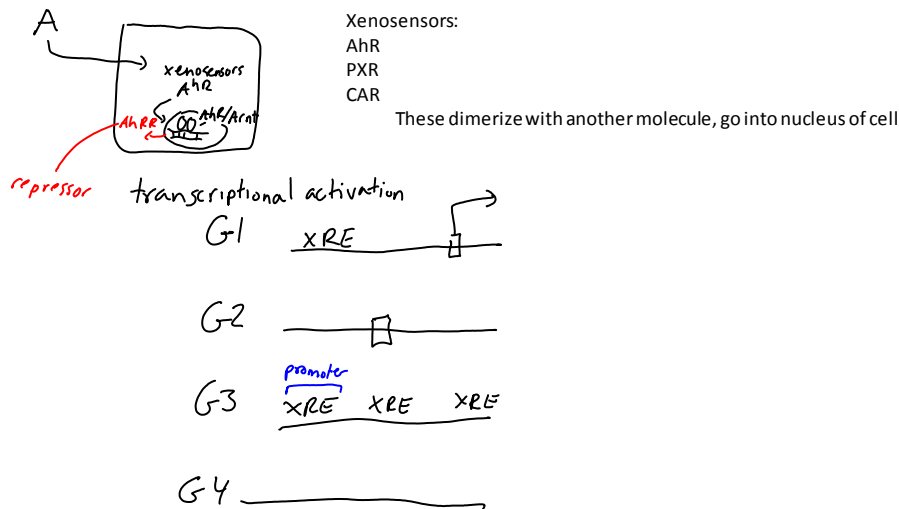 A
xenosensors
AhR
AhR/Arnt
AhRR
repressor
Xenosensors:
AhR
PXR
CAR
These dimerize with another molecule, go into nucleus of cell
transcriptional activation
G1
XRE
G2
promoter
G3 XRE XRE XRE
G4